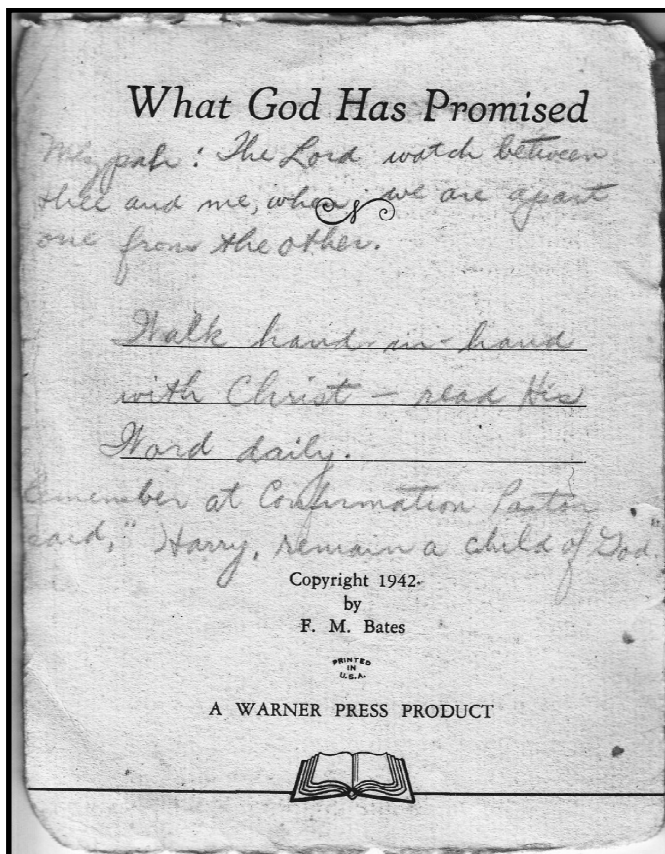 What God Has Promised
Mizpah: The Lord watch between
thee and me, when we are apart
one from the other.
Walk hand-in-hand
with Christ – read His
Word daily.
Remember at Confirmation Pastor
said, "Harry, remain a child of God."
Copyright 1942
by
F. M. Bates
PRINTED
IN
U.S.A.
A WARNER PRESS PRODUCT